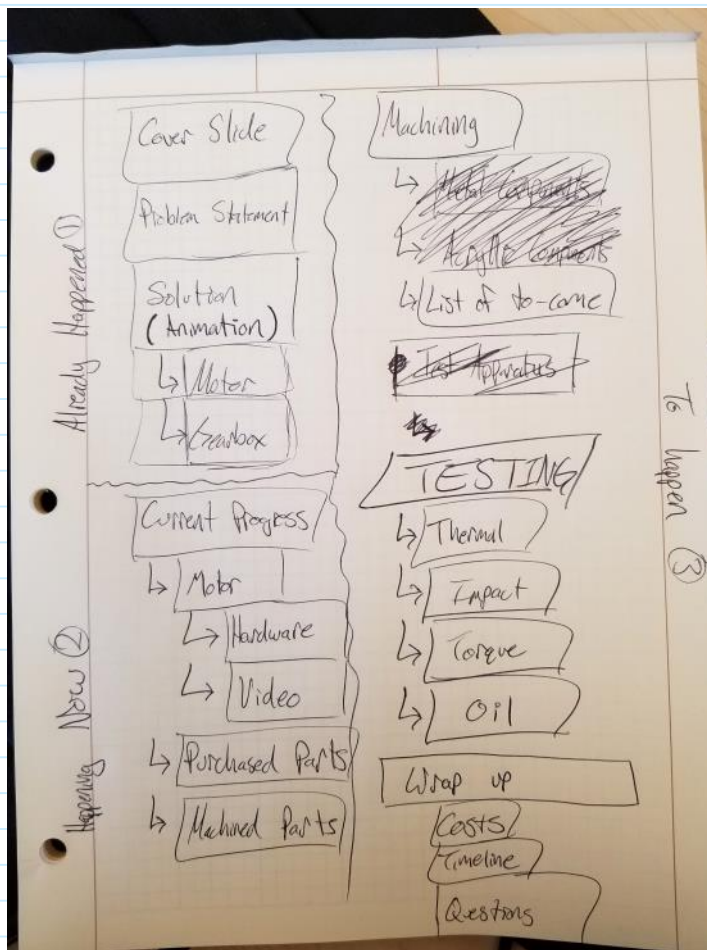 Already Happened ①
Cover Slide
Problem Statement
Solution
(Animation)
↳ Motor
↳ Gearbox
Happening Now ②
Current Progress
↳ Motor
↳ Hardware
↳ Video
↳ Purchased Parts
↳ Machined Parts
To happen ③
Machining
↳ Metal Components
↳ Acrylic Components
↳ List of to-come
Test Apparatus
TESTING
↳ Thermal
↳ Impact
↳ Torque
↳ Oil
Wrap up
Costs
Timeline
Questions